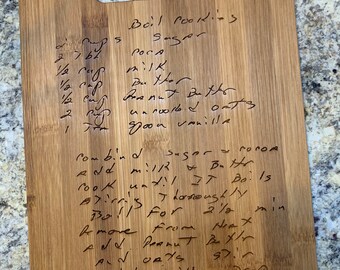 Boil Cookies
2 cups Sugar
2 Tbl Coca
1/2 cup milk
1/2 cup Butter
1/2 cup Peanut Buttr
2 cup uncooked oats
1 Tea spoon vanilla
Combind Sugar & Cocoa
and milk & Butter
Cook until IT Boils
Stiring Thoroughly
Boil For 2 1/2 min
Remove From Heat
add Peanut Buttr
and oats Stir